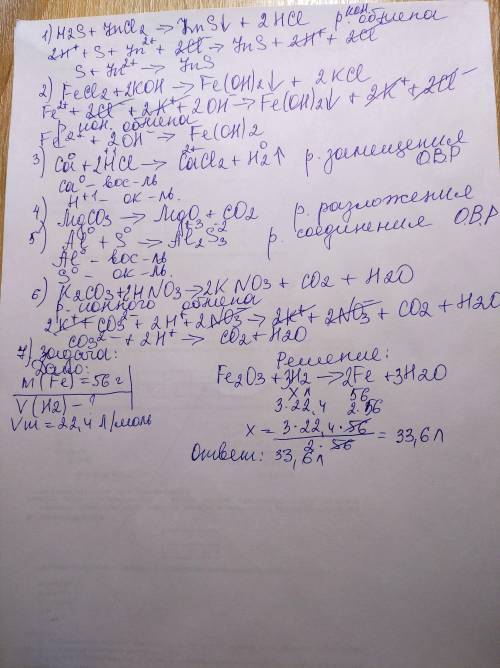 1) H2S + ZnCl2 → ZnS↓ + 2HCl р. ион. обмена
2H⁺ + S + Zn²⁺ + 2Cl⁻ → ZnS + 2H⁺ + 2Cl
S + Zn²⁺ → ZnS
2) FeCl2 + 2KOH → Fe(OH)2↓ + 2KCl
Fe²⁺ + 2Cl⁻ + 2K⁺ + 2OH⁻ → Fe(OH)2↓ + 2K⁺ + 2Cl⁻
р. ион. обмена
Fe²⁺ + 2OH⁻ → Fe(OH)2
3) Ca⁰ + 2HCl → Ca²⁺Cl2 + H2⁰↑ р. замещения
ОВР
Ca⁰ – вос-ль
H⁺¹ – ок-ль.
4) MgCO3 → MgO + CO2 р. разложения
5) Al⁰ + S⁰ → Al2⁺³S3⁻² р. соединения ОВР
Al⁰ – вос-ль
S⁰ – ок-ль.
6) K2CO3 + 2HNO3 → 2KNO3 + CO2 + H2O
р. ионного обмена
2K⁺ + CO3²⁻ + 2H⁺ + 2NO3⁻ → 2K⁺ + 2NO3⁻ + CO2 + H2O
CO3²⁻ + 2H⁺ → CO2 + H2O
7) задача:
Дано:
m(Fe) = 56 г
V(H2) – ?
Vm = 22,4 л/моль
Решение:
Fe2O3 + 3H2 → 2Fe + 3H2O
x л 56
3·22,4 2·56
x = 3·22,4·56 / 2·56 = 33,6 л
Ответ: 33,6 л